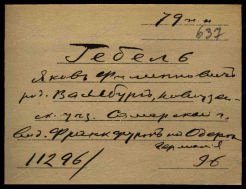 79 н.п
637
Гебель
Яков Филиппович
род. Вальбург, Новоузен-
ск. уез. Самарской г.
вод. Франкфурт на Одере
Германия
11296/ 96